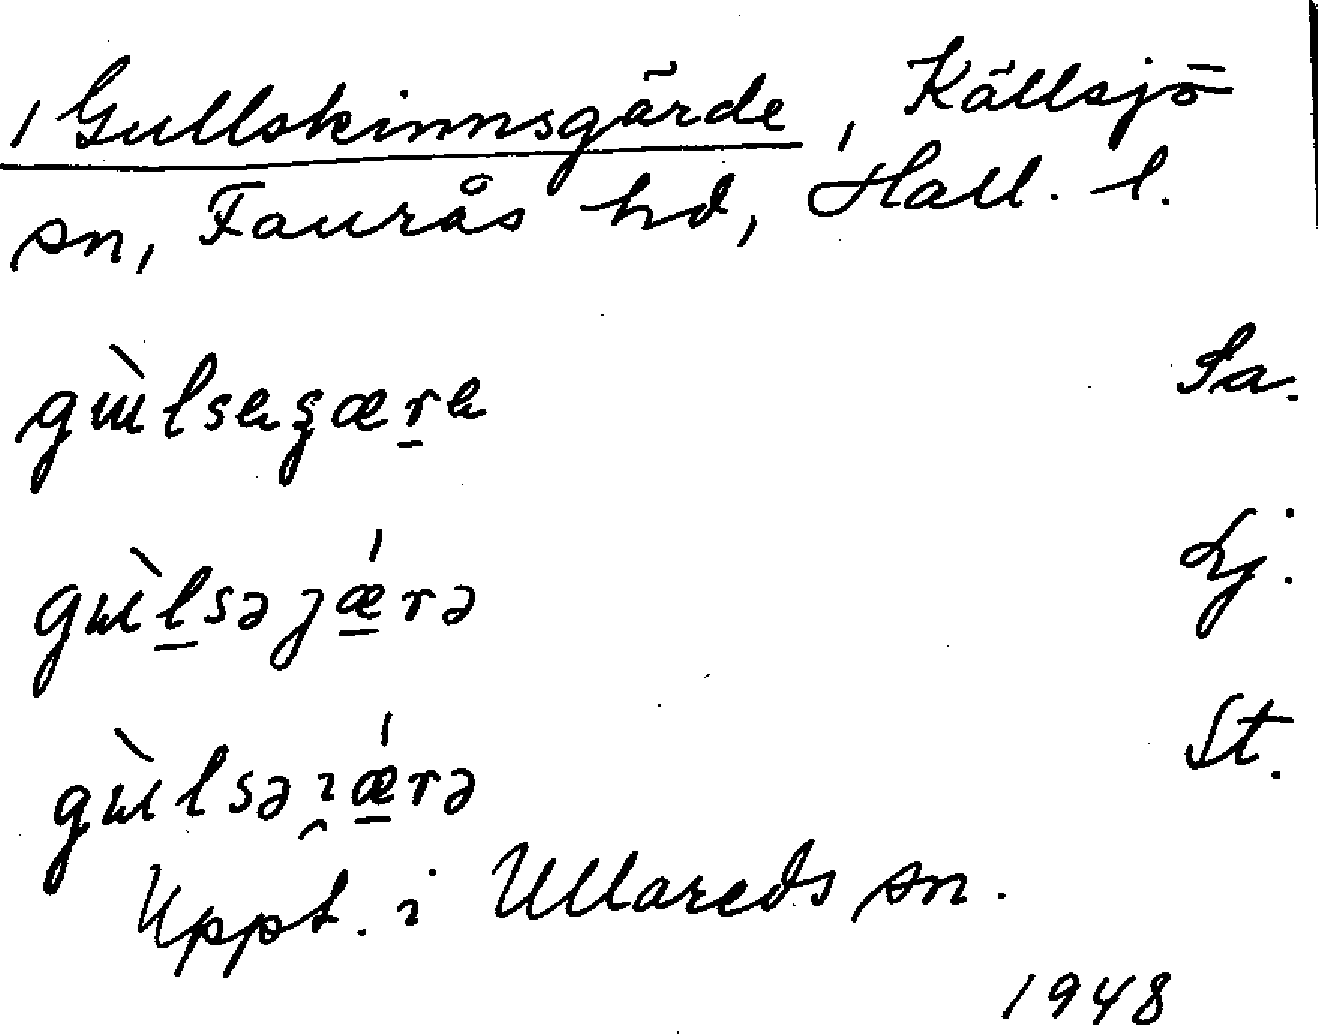 / Gullskinnsgärde, Källsjö
sn, Faurås hd, Hall. l.
gɯ̀lsegære Sa.
gɯ̀lsəȷǽrə Lj.
gɯ̀lsəı̯ǽrə St.
Uppt. i Ullareds sn.
1948